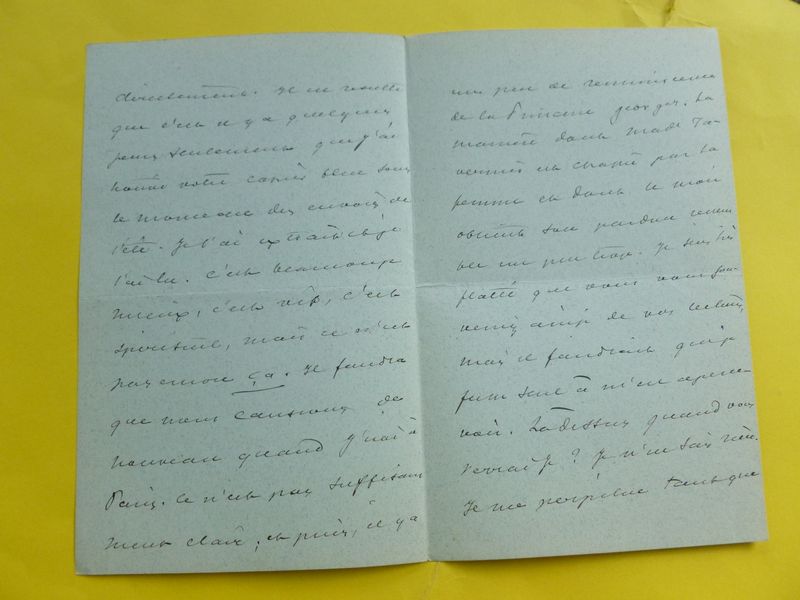 directement. Il en résulte
que c'est il y a quelques
jours seulement que j'ai
trouvé votre copie bleu sous
le monceau des envois de
l'été. Je l'ai extraite et je
l'ai lu. C'est beaucoup
mieux, c'est vif, c'est
spirituel, mais ce n'est
pas encore ça. Il faudra
que nous causions de
nouveau quand j'irai à
Paris. Ce n'est pas suffisam
ment clair, et puis, il y a
un peu de réminiscence
de la Princesse Georges. Le
mari dans Made Ta
vernier est chassé par sa
femme et dans le mien
obtient son pardon
un peu trop. Je suis très
flatté que vous vous sou
veniez ainsi de vos lectures
mais il faudrait que je
fusse seul à m'en aperce
voir. Là dessus quand vous
verrai-je? Je n'en sais rien.
Je me perpétue tant que